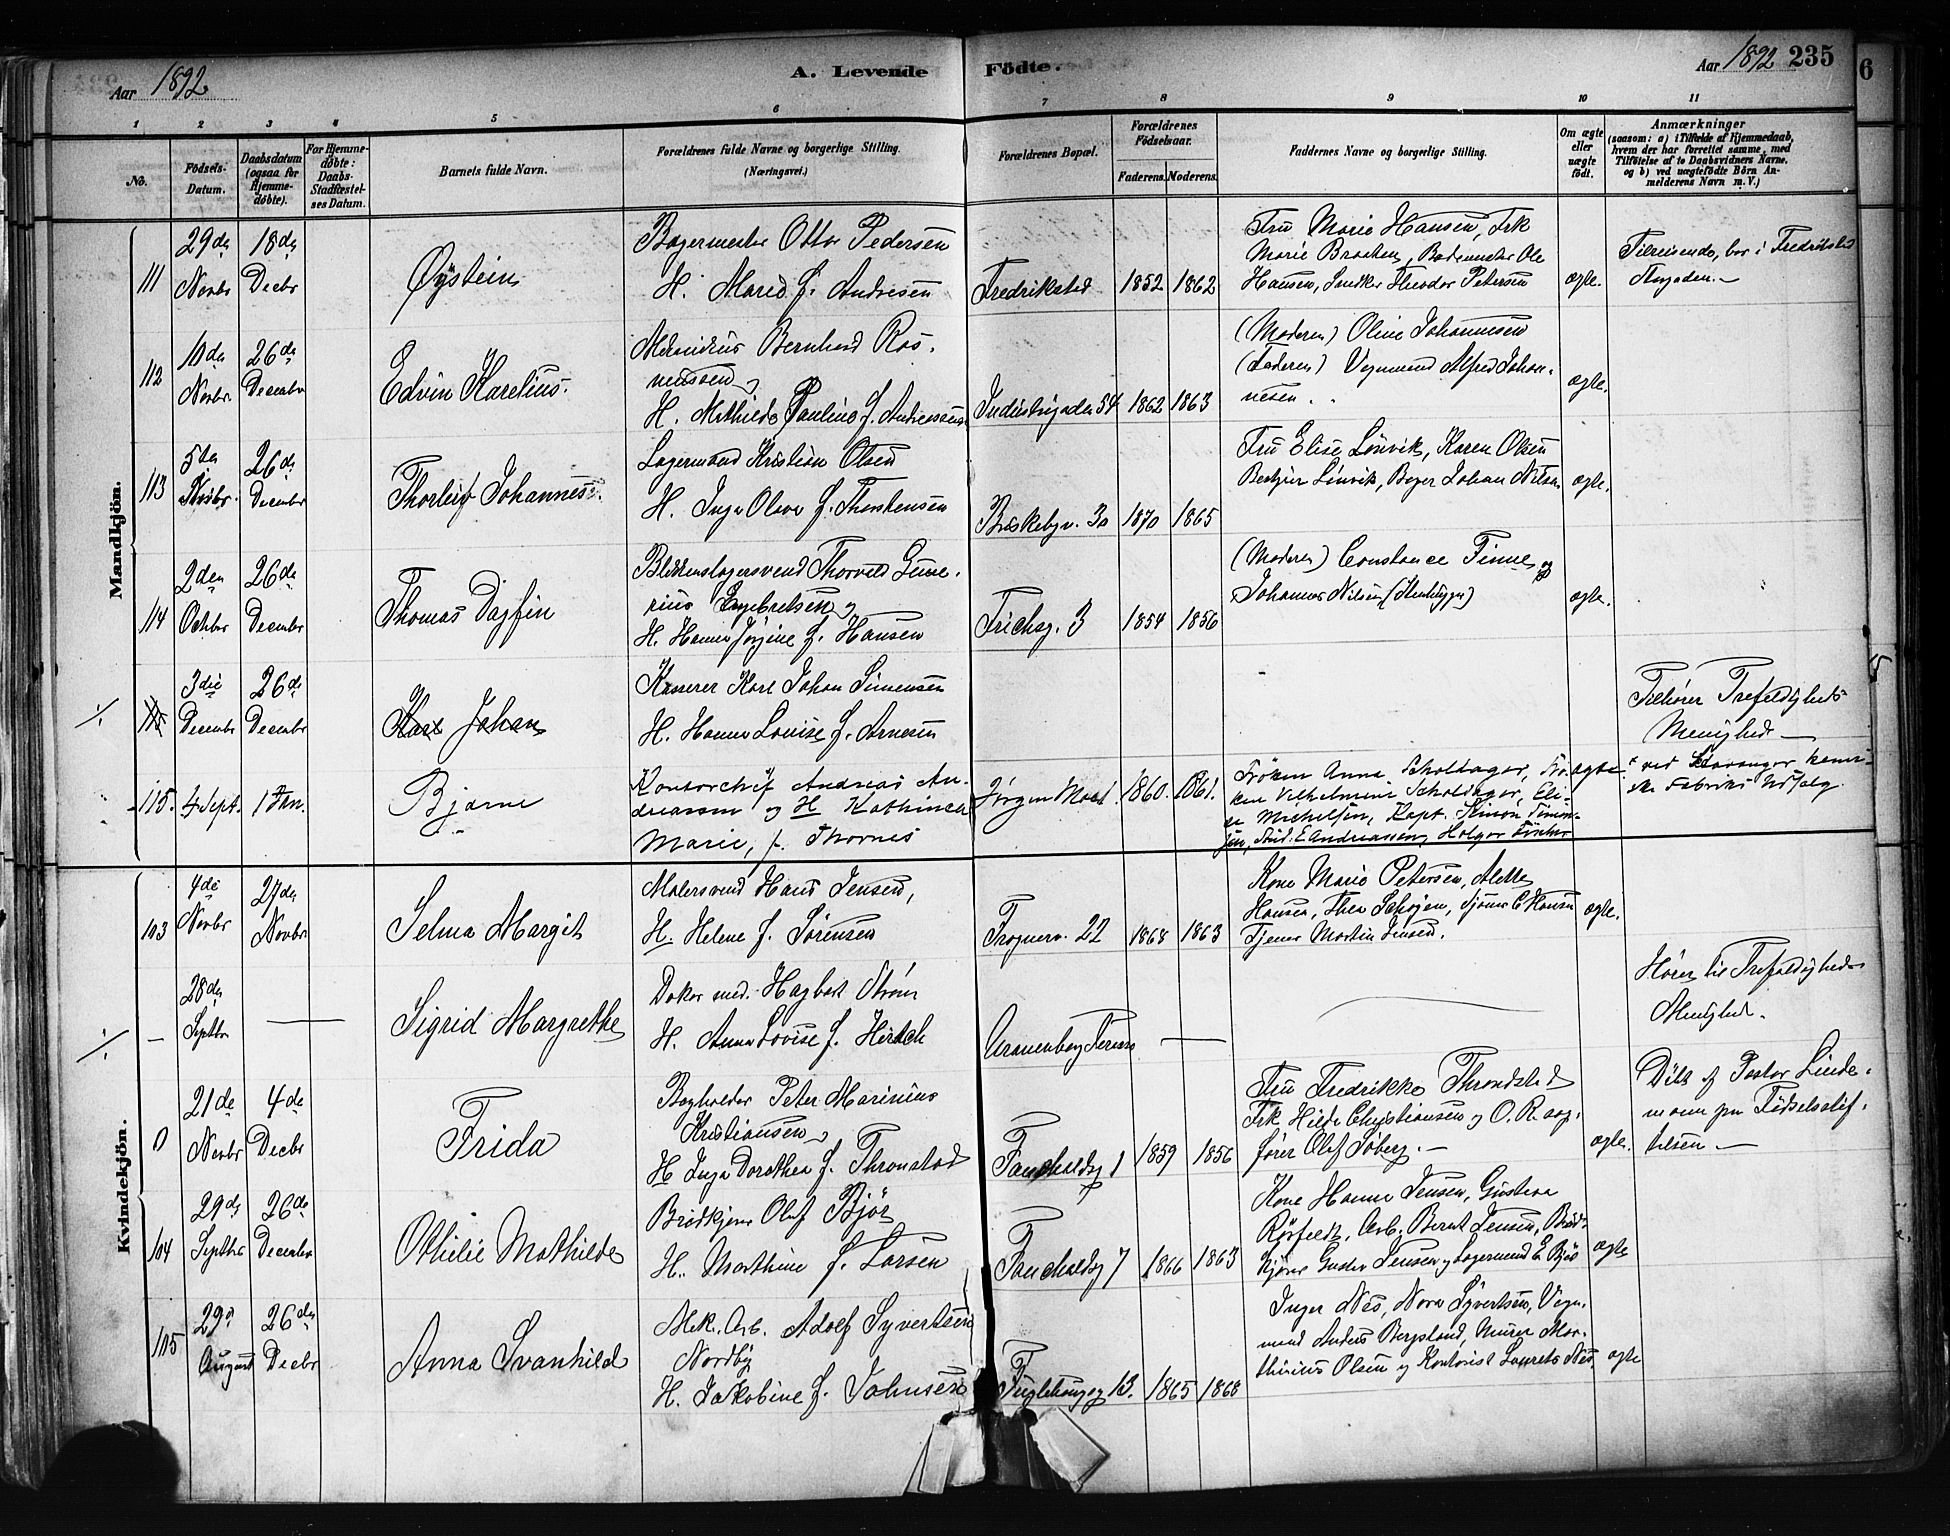 Aar 1892.
A. Levende Fødte.
Aar 1892
235
6
1 2 3 4 5 6 7 8 9 10 11
No.
Fødsels-Datum.
Daabsdatum (ogsaa for Hjemme-døbte).
For Hjemme-døbte: Daabs-Stadfæstel-ses Datum.
Barnets fulde Navn.
Forældrenes fulde Navne og borgerlige Stilling.
(Næringsvei.)
Forældrenes Bopæl.
Forældrenes Fødselsaar.
Faderens. Moderens.
Faddernes Navne og borgerlige Stilling.
Om ægte eller uægte født.
Anmærkninger
(saasom: a) i Tilfælde af Hjemmedaab,
hvem der har forrettet samme, med
Tilføielse af to Daabsvidners Navne.
og b) ved uægtefødte Børn An-
melderens Navn m. V.)
Mandkjön.
111
29de Novbr
18de Decbr
Øystein
Bagermester Otto Pedersen
H. Marie f. Andresen
Fredrikstad
1852 1862
Fru Marie Hansen, Frk
Marie Braathen, Ole
Hansen, Snedker Theodor Petersen
ægte.
Tilreisende, bor i Fredrikstad
112
10de Novbr.
26de December
Edvin Karelius.
Bernhard Ras-
mussen
H. Mathilde Pauline f. Andreassen
Industrigaden 54
1862 1863
(Moderen) Oline Johannesen
(Faderen) Vognmand Alfred Johan-
nesen.
ægte.
113
5te Novbr.
26de December
Thorleif Johannes.
Lagermand Kristian Olsen
H. Inga Olava f. Thorstensen
Briskebyv. 30
1870 1865
Fru Elise Lønvik, Karen Olsen
Lønvik, Bager Johan Nilsen
ægte.
114
2den Octbr
26de December
Thomas Dagfin
Blikkenslagersvend Thorvald Gune-
rius Engebretsen og
H. Hanna Jørgine f. Hansen
Frichsg. 3
1854 1856
(Moderen) Constance Finne og
Johannes Nilsen (Stenhugger)
ægte.
./.
115
3die December
26de December
Karl Johan
Kasserer Karl Johan Simensen
H. Hanna Louise f. Arnesen
Tilhører Trefoldigheds
Menighed
115.
4 Sept.
1 Jan.
Bjarne
Kontorchef Andreas An-
dreassen og H Kathinca
Marie, f. Thornes
Jörgen Moes
1860. 1861.
Fröken Anna Scholdager, Frö-
ken Vilhelmine Scholdager, Eli-
se Michelsen, Kapt. Simon Simon-
sen, Stud. E Andreassen, Holger
ægte
ved Stavanger kemi-
ske Fabriks Udsalg.
Kvindekjön.
103
4de Novbr
27de Novbr.
Selma Margit
Malersvend Hans Jensen,
H. Helene f. Sørensen
Frognerv. 22
1868 1863
Kone Marie Petersen,
Hansen, Thea Schøjen, C Hansen
Tjener Martin Jensen.
ægte.
./. —
28de Septbr
—
Sigrid Margrethe
Doktor med. Hagbart Strøm
H. Anna Lovise f. Hirsch
—
Hører til Trefoldigheds
Menighed.
0
21de Novbr
4de Decbr
Frida
Bogholder Peter Marinius
Kristiansen og
H Inga Dorothea f. Thronstad
Fauchaldsg 1
1859 1856
Fru Fredrikke Throndstad
Frk Hilda Christiansen og O. R. sag-
fører Olaf Søberg. —
ægte.
Døbt af Pastor Linde-
mann pr Fødselsstif-
telsen —
104
29de Septbr
26de December
Othilie Mathilde
Brødkjører Olaf Bjør
H. Marthine f. Larsen
Fauchaldsg 7
1866 1863
Kone Hanna Jensen, Gustava
Rørfeldt, Arb. Bernt Jensen, Brød-
kjører Gustav Jensen og Lagermand E. Bjør
ægte
105
29de August
26de Decbr
Anna Svanhild
Mek. Arb. Adolf Syvertsen
Nordby
H. Jakobine f. Johnsen
Fuglehaugsg 13.
1865 1868
Inger Næs, Nora Syvertsen, Vogn-
mand Anders Bergsland, Murer Mar-
thinius Olsen og Kontorist Laurits Næs
ægte